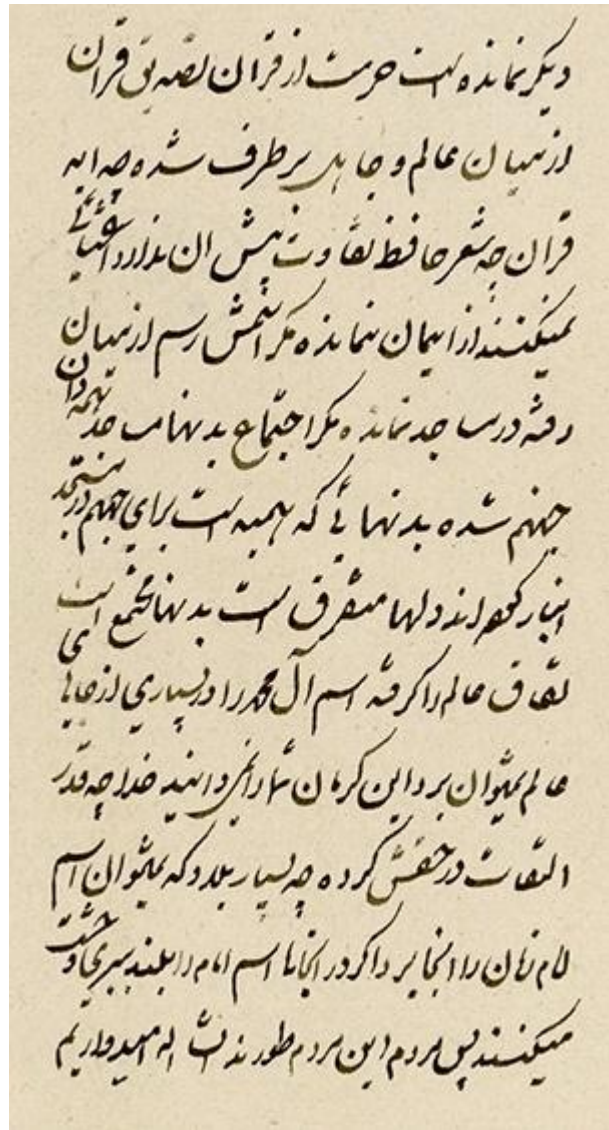 دیگر نمانده است حرمت از قرآن تصدیق قرآن
از میان عالم و جاهل بر طرف شده چه آیه
قرآن چه شعر حافظ تفاوت پیش ان ندارد اعتنائی
نمیکنند از ایمان نمانده مگر اسمش رسم از میان
رفته در مساجد نمانده مگر اجتماع بدنها مساجد
جهنم شده بدنهائی که هیمه است برای جهنم در مسجد
انبار کرده‌اند دلها متفرق است بدنها مجتمع است
نفاق عالم را گرفته اسم آل محمد را در بسیاری از جاهای
عالم نمیتوان برد این کرمان شما را نمی‌دانید خدا چه قدر
التفات در حقش کرده چه بسیار بلد که نمیتوان اسم
امام زمان را انجا برد اگر در انجاها اسم امام را بلند ببری وحشت
میکنند پس مردم این مردم طورند انشاء الله امیدواریم